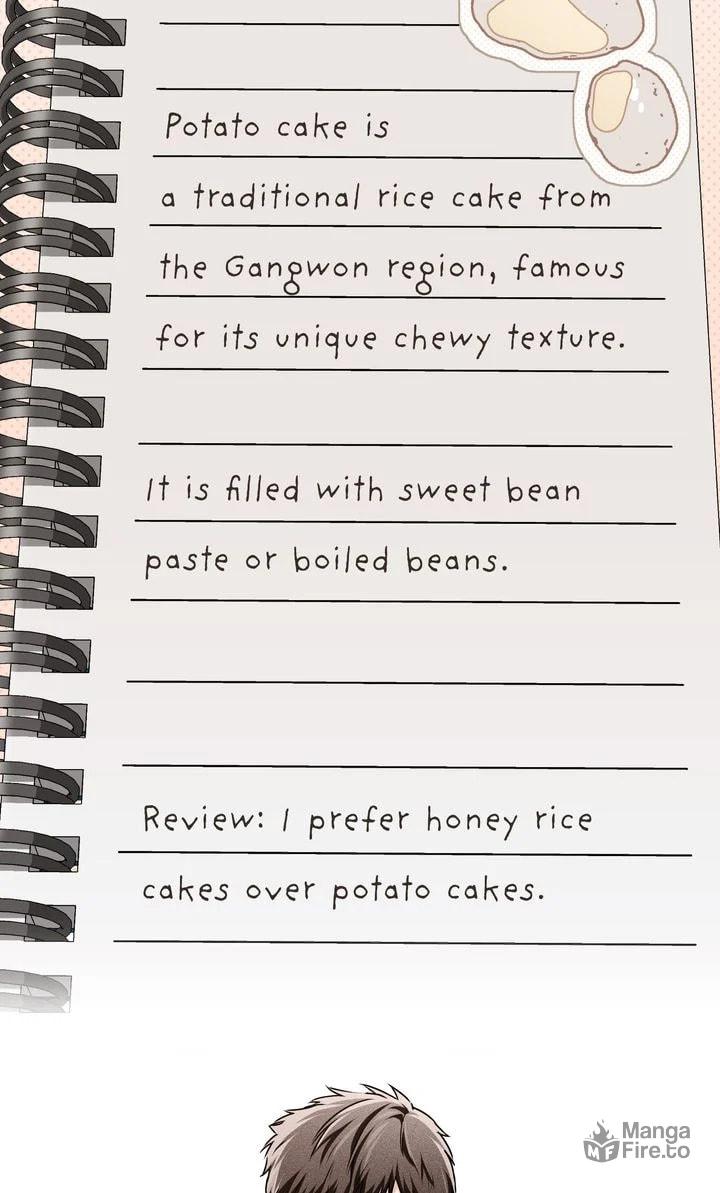 Potato cake is
a traditional rice cake from
the Gangwon region, famous
for its unique chewy texture.
It is filled with sweet bean
paste or boiled beans.
Review: I prefer honey rice
cakes over potato cakes.
MF
Manga
Fire.to